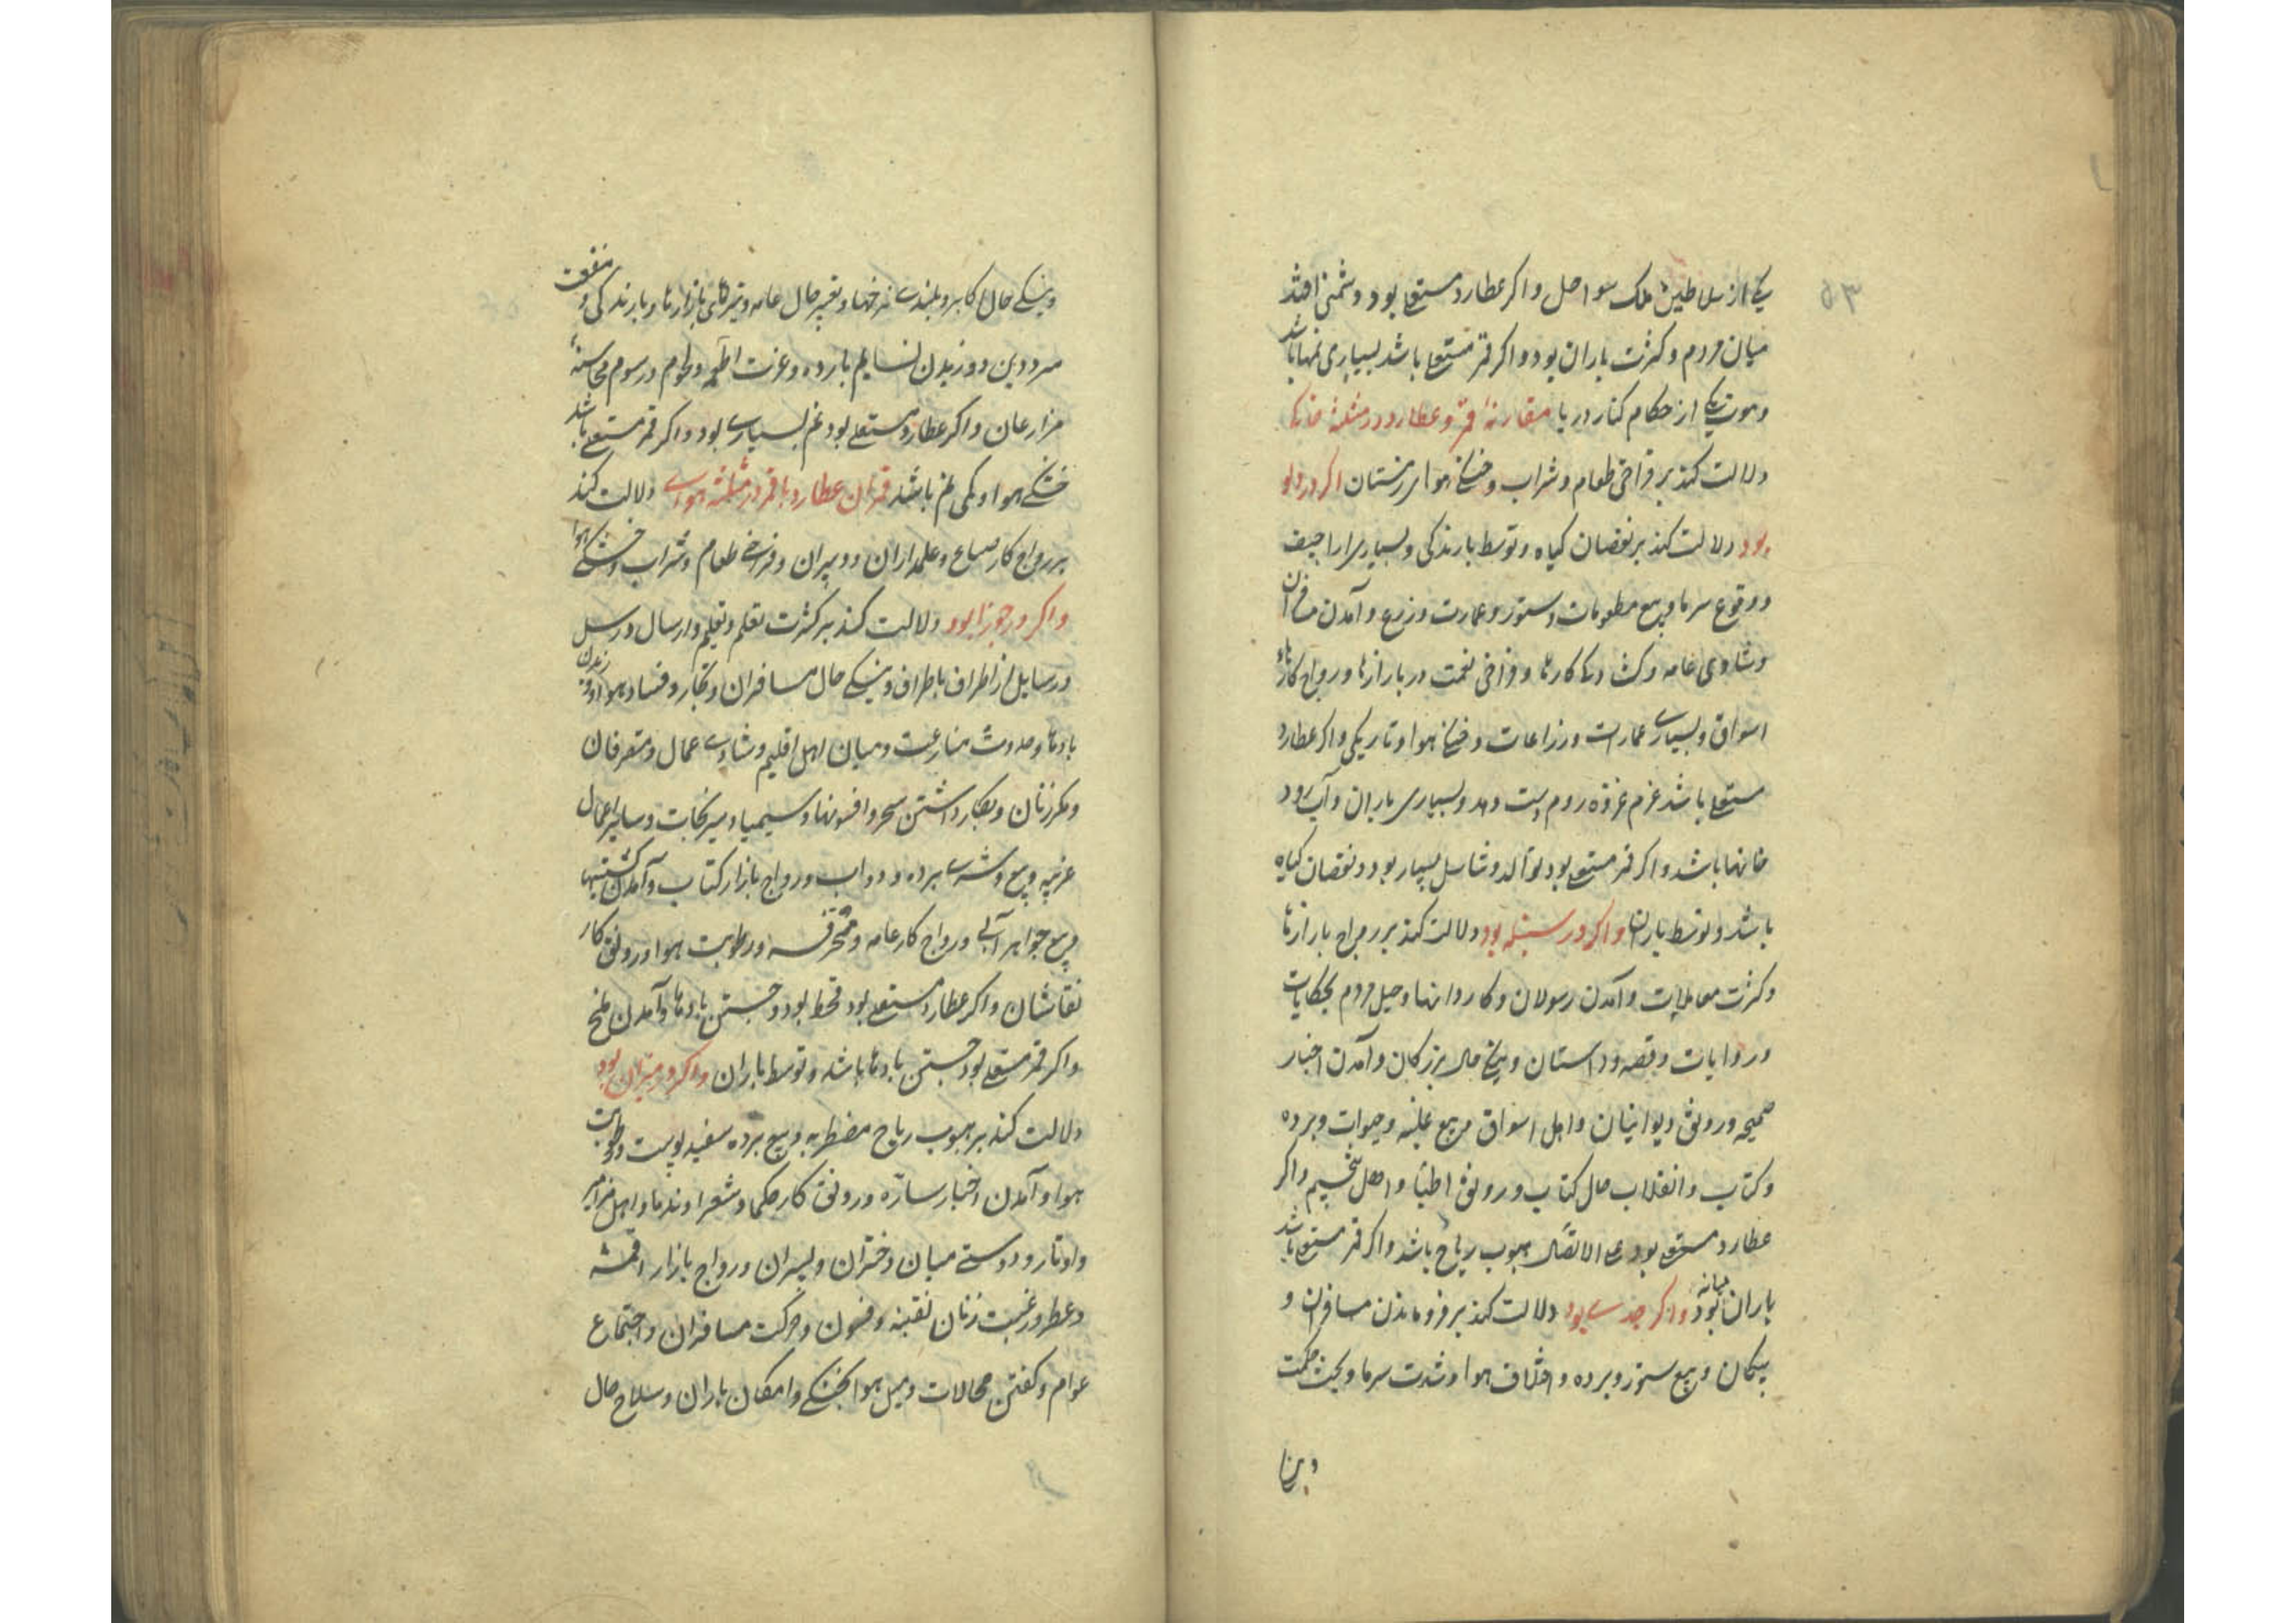 یکی از سلاطین ملک سواحل و اکر عطارد مستعلی بود و دشمنی افتد
میان مردم و کثرت باران بود و اکر قمر مستعلی باشد بسیاری نمها باشد
و موت یکی از حکام کنار دریا مقارنهٔ قمر و عطارد در مثلثهٔ خاکی
دلالت کند بر فراخی طعام و شراب و خنکی هوا در زمستان اکر در ثور
بود دلالت کند بر نقصان کیاه و توسط بارندکی و بسیاری اراجیف
و وقوع سرما و بیع مطعومات و ستور و عمارت و زرع و آمدن مسافران
و شادی عامه و کشادکی کارها و فراخی نعمت در بازارها و رواج کارهاء
اسواق و بسیاری عمارات و زراعات و خنکی هوا و تاریکی و اکر عطارد
مستعلی باشد عزم غزوه روم دست دهد و بسیاری باران و آب رود
خانها باشد و اکر قمر مستعلی بود توالد و تناسل بسیار بود و نقصان کیاه
باشد و توسط باران و اکر در سنبله بود دلالت کند بر رواج بازارها
و کثرت معاملات و آمدن رسولان و کاروانها و میل مردم بحکایات
و روایات و قصه و داستان و نیکی حال بزرکان و آمدن اخبار
صحیحه و رونق دیوانیان و اهل اسواق و بیع غله و حبوبات و برده
و کتاب و انقلاب حال کتاب و رونق اطبا و اهل تنجیم و اکر
عطارد مستعلی بود علی الاتصال هبوب ریاح باشد و اکر قمر مستعلی باشد
باران میانه بود و اکر جدی بود دلالت کند بر فروماندن مسافران و
پیکان و بیع ستور و برده و اختلاف هوا و شدت سرما و بحث حکمت
و نیکی حال اکابر و بلندی نرخها و تغییر حال عامه و تیزی بازارها و بارندکی و منفعت
سرد و وزیدن نسایم بارده و عزت اطعمه و لحوم و رسوم محاسبهٔ
مزارعان و اکر عطارد مستعلی بود نم بسیاری بود و اکر قمر مستعلی باشد
خشکی هوا و کمی نم باشد قران عطارد با قمر در مثلثهٔ هوایی دلالت کند
بر رواج کار صناع و علمداران و دبیران و فراخی طعام و شراب و خشکی هوا
و اکر در جوزا بود دلالت کند بر کثرت تعلم و تعلیم و ارسال و رسل
و رسایل از اطراف باطراف و نیکی حال مسافران و تجار و فساد هوا و وزیدن
بادها و حدوث منازعت میان اهل اقلیم و شادی عمال و متصرفان
و مکر زنان و بکار داشتن سحر و افسونها و سیمیا و نیرنجات و سایر اعمال
غریبه و بیع و شری برده و دواب و رواج بازار کتاب و آمدن کشتیها
و بیع جواهر آبی و رواج کار عامه و محترفه و رطوبت هوا و رونق کار
نقاشان و اکر عطارد مستعلی بود قحط بود و جستن بادها و آمدن ملخ
و اکر قمر مستعلی بود جستن بادها باشد و توسط باران و اکر در میزان بود
دلالت کند بر هبوب ریاح مضطربه و بیع برده سفید پوست و رطوبت
هوا و آمدن اخبار ساره و رونق کار حکما و شعرا و ندما و اهل مزامیر
و اوتار و دوستی میان دختران و پسران و رواج بازار اقمشه
و عطر و رغبت زنان بفتنه و فسون و حرکت مسافران و اجتماع
عوام و کفتن محالات و میل هوا بخنکی و امکان باران و صلاح حال